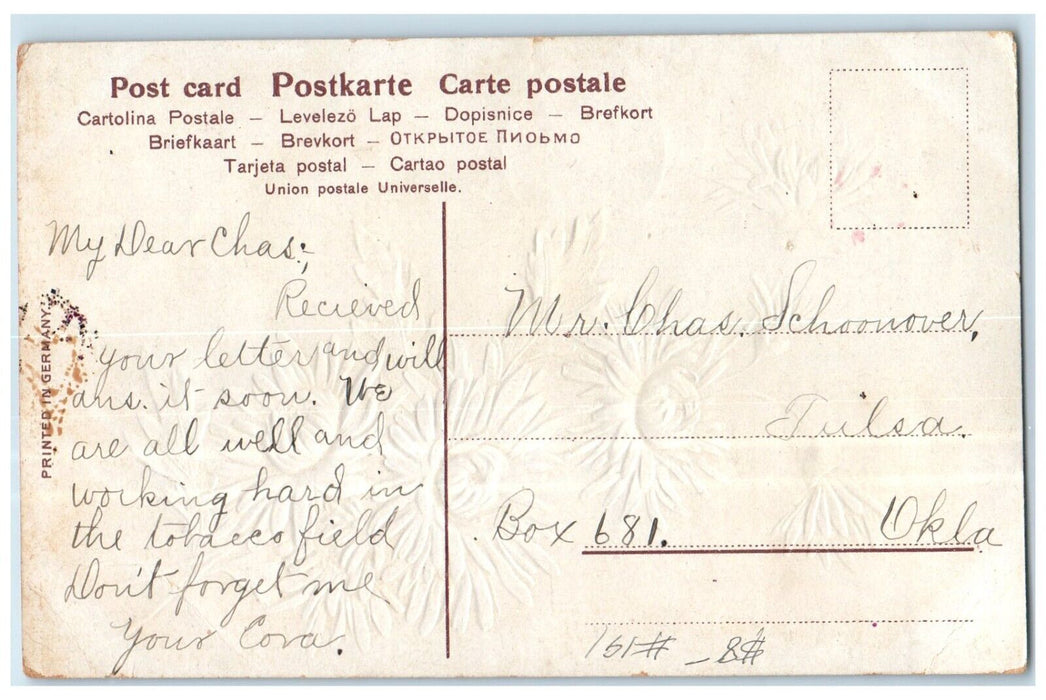 Post card Postkarte Carte postale
Cartolina Postale – Levelezö Lap – Dopisnice – Brefkort
Briefkaart – Brevkort – ОТКРЫТОЕ ПИСЬМО
Tarjeta postal – Cartao postal
Union postale Universelle.
My Dear Chas:,
Recieved
your letter and will
ans. it soon. We
are all well and
working hard in
the tobacco field
Don't forget me
Your Cora.
PRINTED IN GERMANY.
Mr. Chas. Schoonover,
Tulsa.
Box 681. Okla